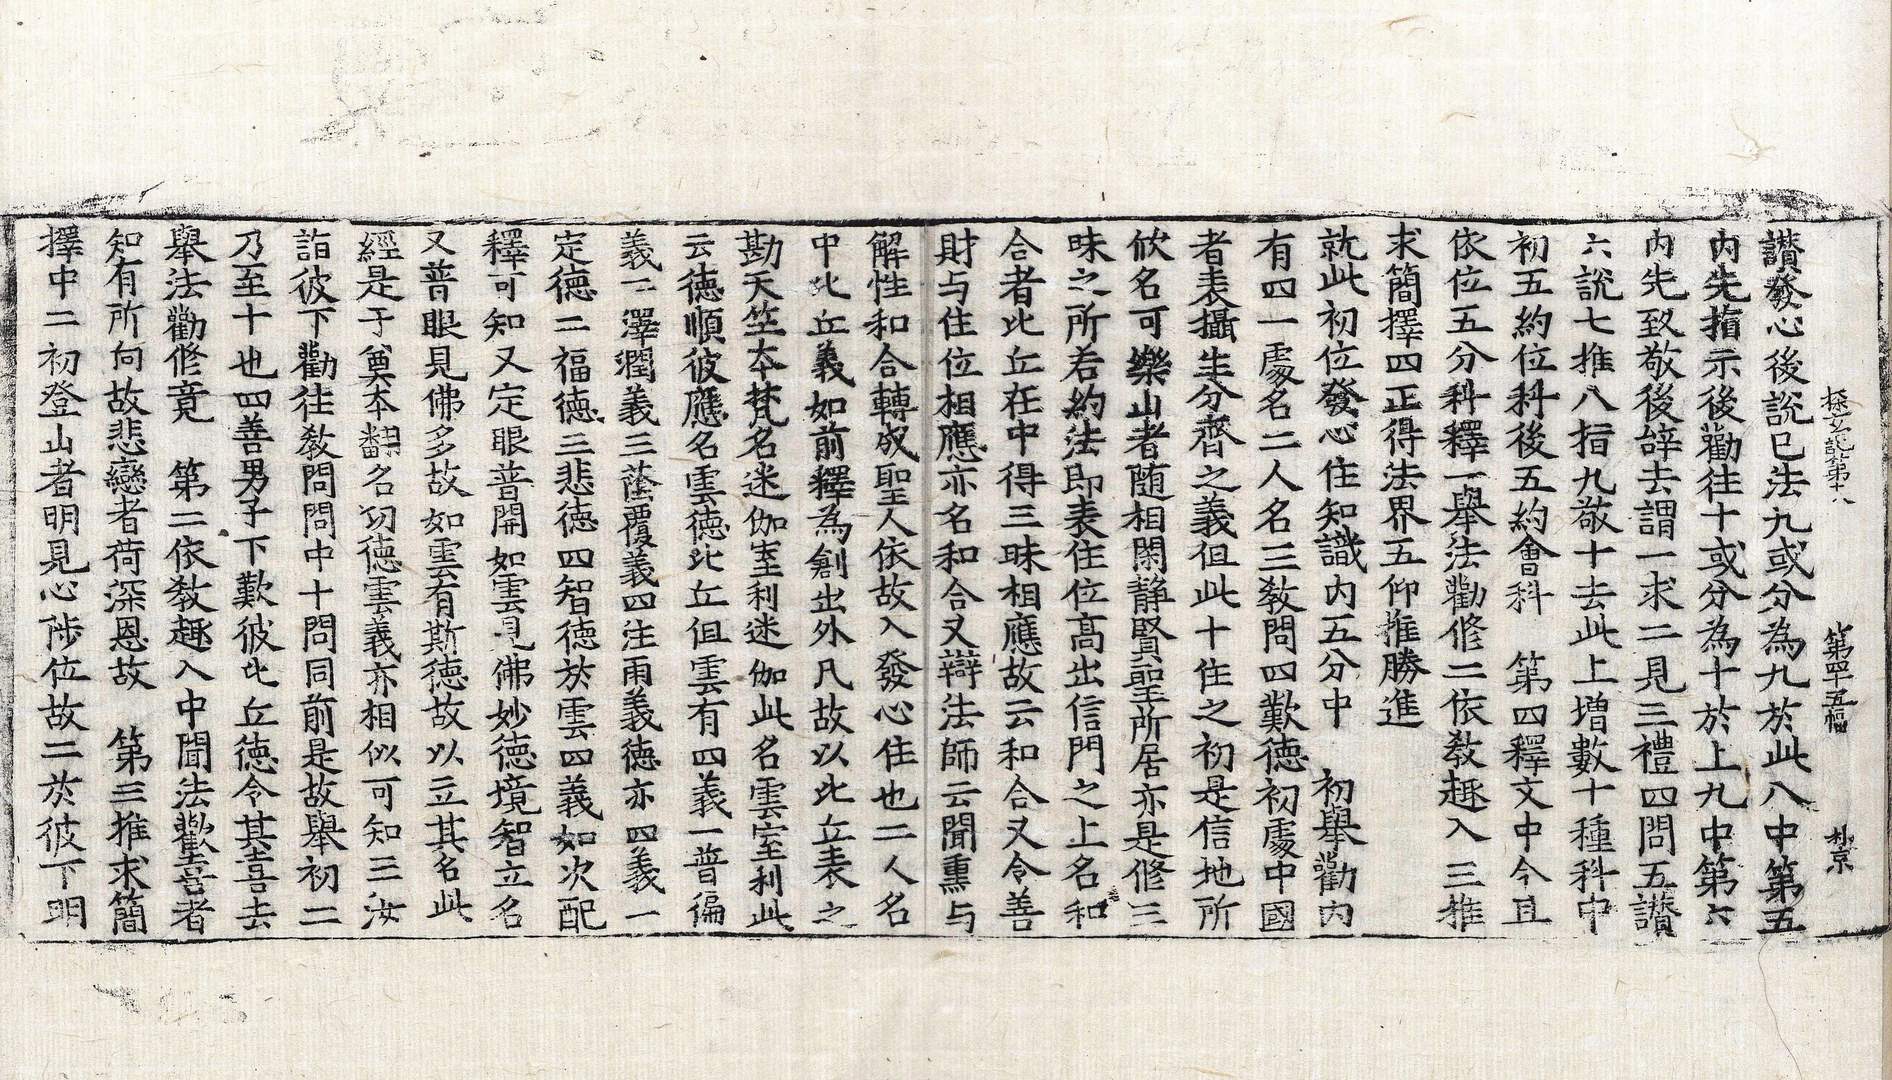 探玄記第十八 第四十五幅 朴京
讃發心後說已法九或分為九於此八中第五
內先指示後勸往十或分為十於上九中第六
內先致敬後辞去謂一求二見三禮四問五讃
六說七推八指九敬十去此上增數十種科中
初五約位科後五約會科 第四釋文中今且
依位五分科釋一舉法勸修二依教趣入三推
求簡擇四正得法界五仰推勝進
就此初位發心住知識內五分中 初舉勸內
有四一處名二人名三教問四歎德初處中國
者表攝生分齊之義但此十住之初是信地所
忺名可樂山者随相閑静賢聖所居亦是修三
昧之所若約法即表住位高出信門之上名和
合者比丘在中得三昧相應故云和合又令善
財与住位相應亦名和合又辯法師云聞熏与
解性和合轉成聖人依故入發心住也二人名
中比丘義如前釋為創出外凡故以比丘表之
勘天竺本梵名迷伽室利迷伽此名雲室利此
云德順彼應名雲德比丘但雲有四義一普徧
義二澤潤義三蔭覆義四注雨義德亦四義一
定德二福德三悲德四智德於雲四義如次配
釋可知又定眼普開如雲見佛妙德境智立名
又普眼見佛多故如雲有斯德故以立其名此
經是于奠本翻名㓛德雲義亦相似可知三汝
詣彼下勸往教問問中十問同前是故舉初二
乃至十也四善男子下歎彼比丘德令其喜去
舉法勸修竟 第二依教趣入中聞法歡喜者
知有所向故悲戀者荷深恩故 第三推求簡
擇中二初登山者明見心陟位故二於彼下明